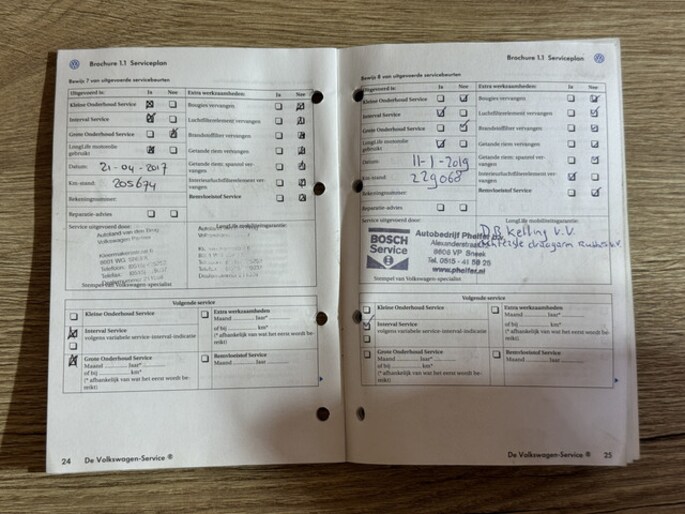 Brochure 1.1 Serviceplan
Bewijs 7 van uitgevoerde servicebeurten
Uitgevoerd is: Ja Nee
Kleine Onderhoud Service
Interval Service
Grote Onderhoud Service
LongLife motorolie
gebruikt
Datum: 21-04-2017
Km-stand: 205674
Rekeningnummer:
Reparatie-advies
Extra werkzaamheden: Ja Nee
Bougies vervangen
Luchtfilterelement vervangen
Brandstoffilter vervangen
Getande riem vervangen
Getande riem: spanrol ver-
vangen
Interieurluchtfilterelement ver-
vangen
Remvloeistof Service
Service uitgevoerd door:
LongLife mobiliteitsgarantie:
Volkswagen Partner
Stempel van Volkswagen-specialist
Volgende service
Kleine Onderhoud Service
Interval Service
volgens variabele service-interval-indicatie
Grote Onderhoud Service
Maand .......... Jaar* ..........
of bij .......... km*
(* afhankelijk van wat het eerst wordt be-
reikt)
Extra werkzaamheden
Maand .......... Jaar* ..........
of bij .......... km*
(* afhankelijk van wat het eerst wordt be-
reikt)
Remvloeistof Service
Maand .......... Jaar ..........
24 De Volkswagen-Service ®
Brochure 1.1 Serviceplan
Bewijs 8 van uitgevoerde servicebeurten
Uitgevoerd is: Ja Nee
Kleine Onderhoud Service
Interval Service
Grote Onderhoud Service
LongLife motorolie
gebruikt
Datum: 11-1-2019
Km-stand: 229068
Rekeningnummer:
Reparatie-advies
Extra werkzaamheden: Ja Nee
Bougies vervangen
Luchtfilterelement vervangen
Brandstoffilter vervangen
Getande riem vervangen
Getande riem: spanrol ver-
vangen
Interieurluchtfilterelement ver-
vangen
Remvloeistof Service
Service uitgevoerd door:
LongLife mobiliteitsgarantie:
BOSCH
Service
Autobedrijf Phelfer b.v.
8606 VP Sneek
www.phelfer.nl
Stempel van Volkswagen-specialist
Volgende service
Kleine Onderhoud Service
Interval Service
volgens variabele service-interval-indicatie
Grote Onderhoud Service
Maand .......... Jaar* ..........
of bij .......... km*
(* afhankelijk van wat het eerst wordt be-
reikt)
Extra werkzaamheden
Maand .......... Jaar* ..........
of bij .......... km*
(* afhankelijk van wat het eerst wordt be-
reikt)
Remvloeistof Service
Maand .......... Jaar ..........
De Volkswagen-Service ® 25